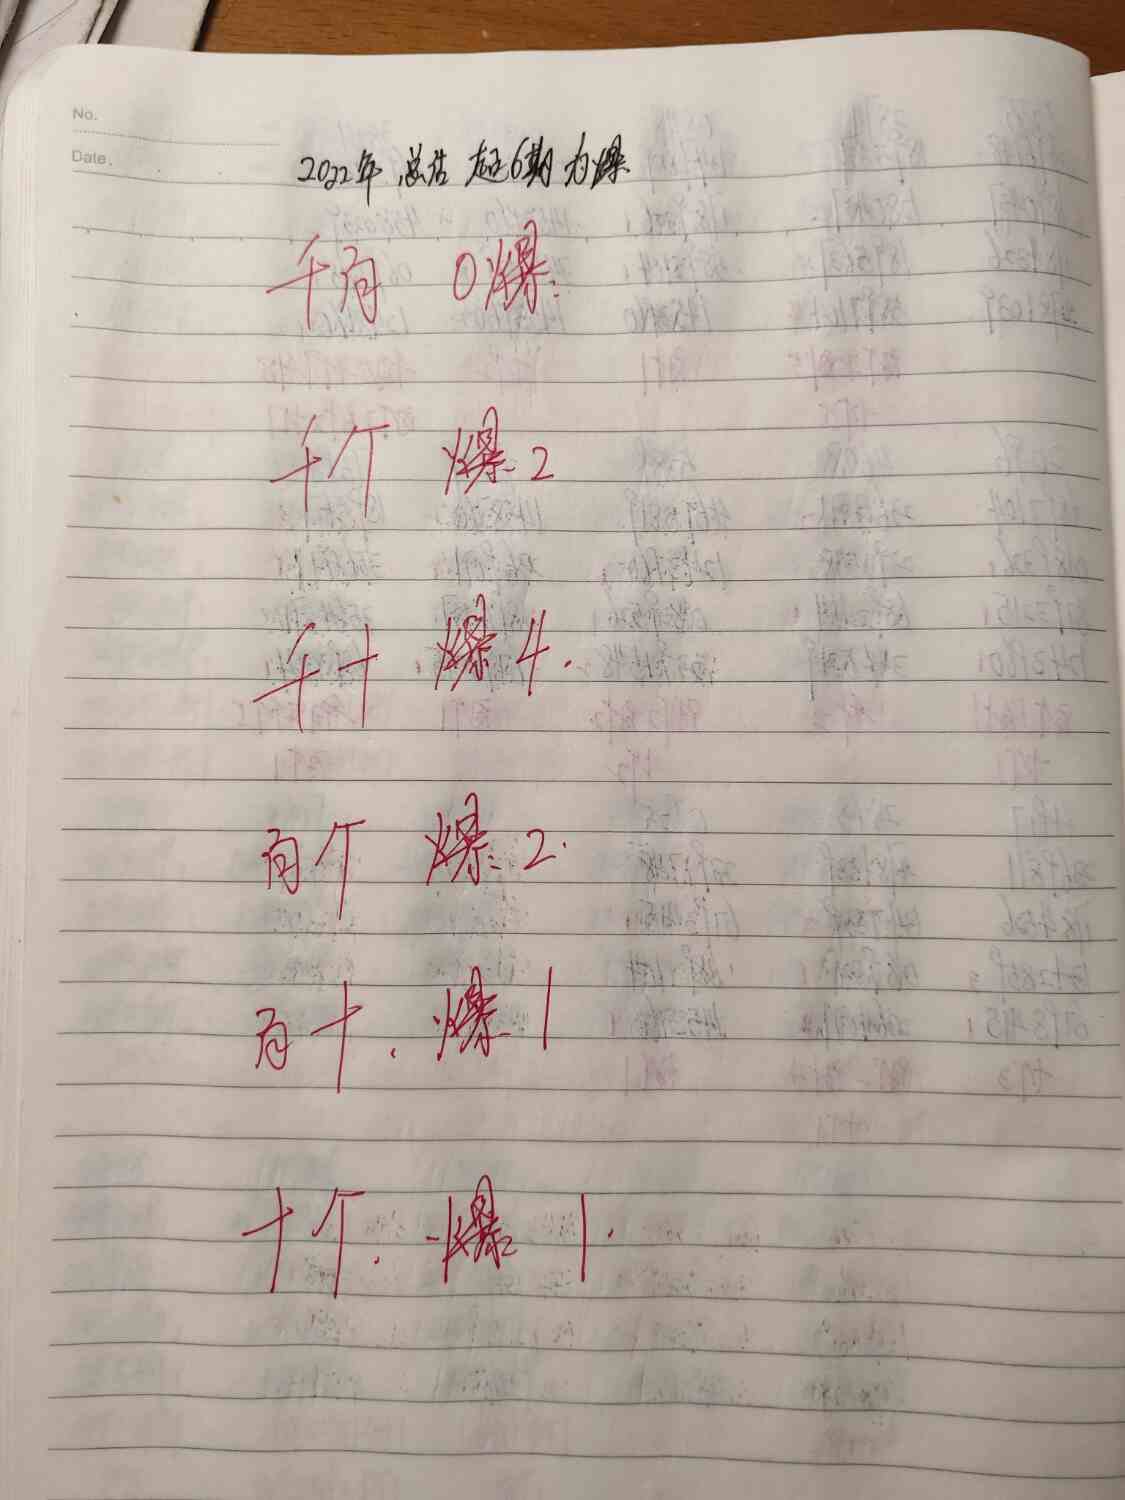 No.
Date.
2022年 总结 超6期为爆
千百 0爆.
千个 爆2
千十. 爆4.
百个 爆2.
百十. 爆1
十个. 爆1.